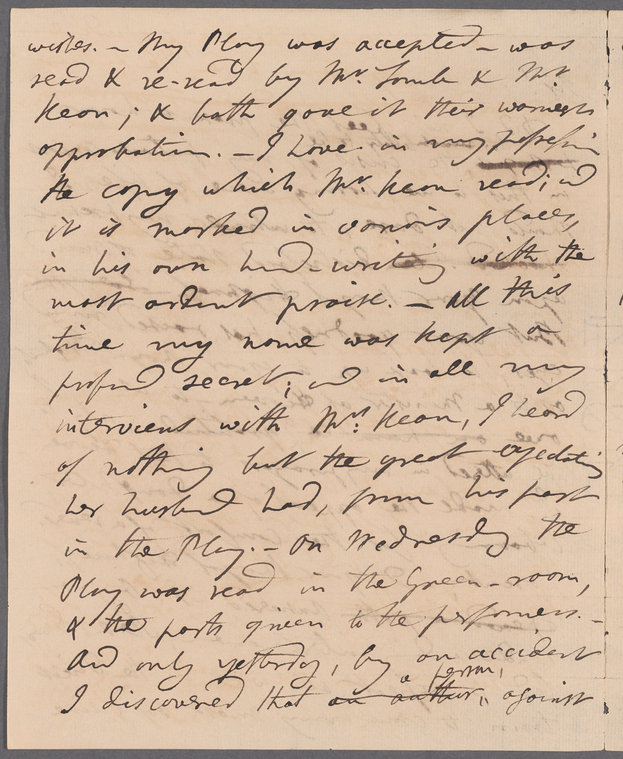 wishes. – My Play was accepted – was
read & re-read by Mr. Lamb & Mr
Kean; & both gave it their warmest
approbation. – I have in my possession
the copy which Mr. Kean read; and
it is marked in various places,
in his own hand-writing with the
most ardent praise. – All this
time my name was kept a
profound secret; and in all my
interviews with Mrs. Kean, I heard
of nothing but the great expectations
her husband had, from his part
in the Play. – On Wednesday the
Play was read in the Green-room,
& the parts given to the performers. –
And only yesterday, by an accident
I discovered that an author, a person, against